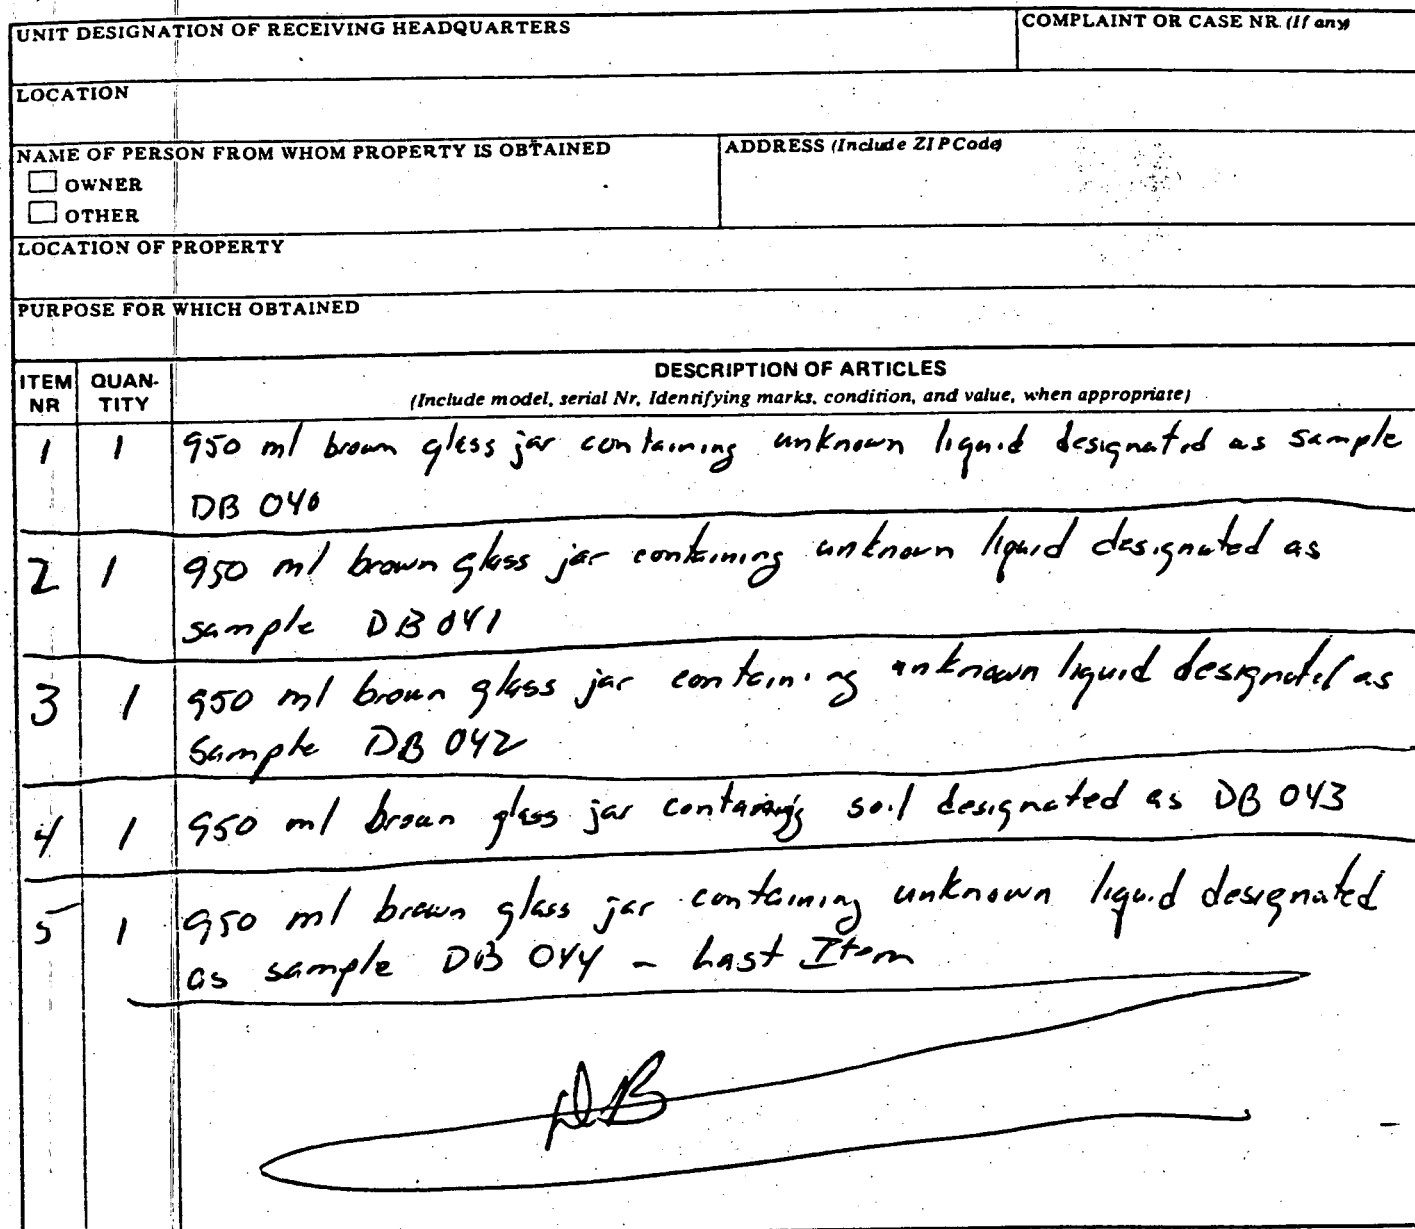 UNIT DESIGNATION OF RECEIVING HEADQUARTERS
COMPLAINT OR CASE NR. (If any)
LOCATION
NAME OF PERSON FROM WHOM PROPERTY IS OBTAINED
OWNER
OTHER
ADDRESS (Include ZIP Code)
LOCATION OF PROPERTY
PURPOSE FOR WHICH OBTAINED
ITEM NR
QUAN-TITY
DESCRIPTION OF ARTICLES
(Include model, serial Nr, Identifying marks, condition, and value, when appropriate)
1 1 950 ml brown glass jar containing unknown liquid designated as sample
DB 040
2 1 950 ml brown glass jar containing unknown liquid designated as
sample DB 041
3 1 950 ml brown glass jar containing unknown liquid designated as
sample DB 042
4 1 950 ml brown glass jar containing soil designated as DB 043
5 1 950 ml brown glass jar containing unknown liquid designated
as sample DB 044 - Last Item
DB